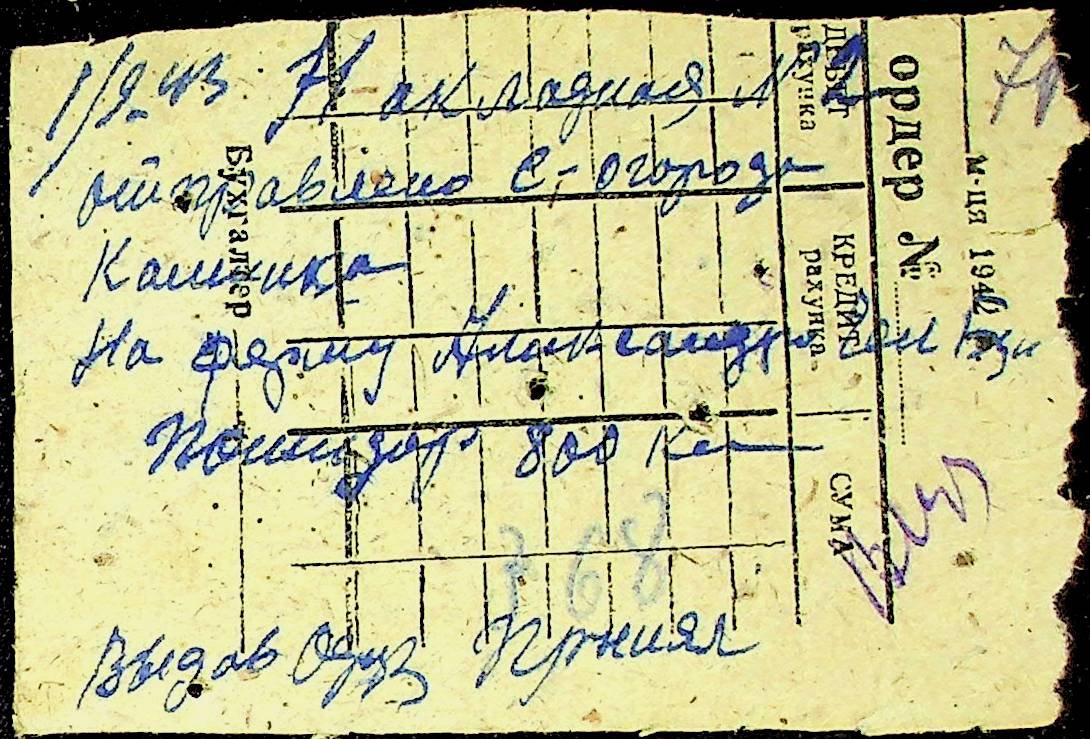 1/9-43 Накладная № 2
отправлено с-огорода
Калиника
На ферму Александра
Помидор 800 кг
768
Выдав Принял
ордер №
м-ця 194
ДЕБЕТ рахунка
КРЕДИТ рахунка
СУМА
Бухгалтер